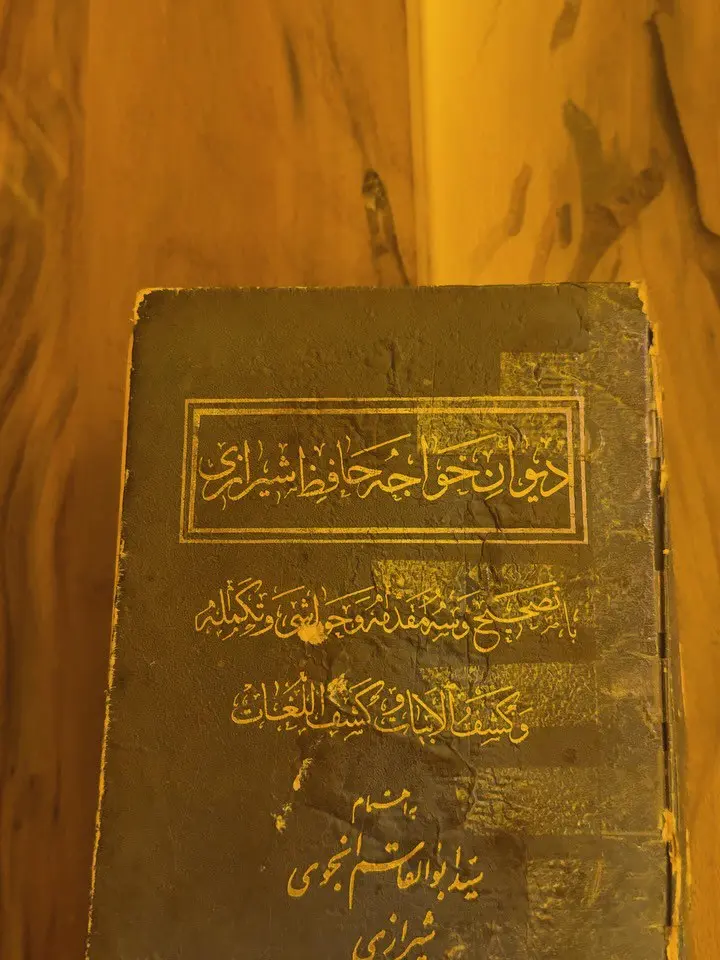 دیوانِ خواجه حافِظ شیرازی
با تصحیح و سه مقدمه و حواشی و تکمله
و کشف‌الابیات و کشف‌اللغات
به اهتمام
سید ابوالقاسم انجوی
شیرازی